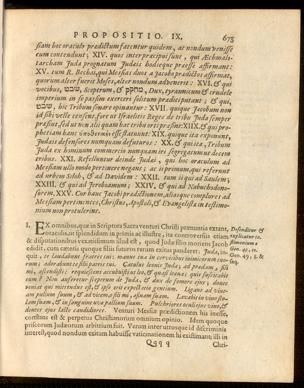 PROPOSITIO. IX. 675
siam hoc oraculo prædictum fatentur quidem, at nondum venisse
eum contendunt; XIV. quos inter præcipui sunt, qui Æchmalo-
tarcham Juda prognatum Judæis hodieque præesse affirmant:
XV. cum R. Bechai, qui Messias duos a Jacobo prædictos affirmat,
quorum alter fuerit Moses, alter nondum advenerit: XVI. & qui
vocibus, שבט, Sceptrum, & מחקק, Dux, tyrannicum & crudele
imperium in se passim exerceri solitum prædici putant; & qui,
שבט, hic Tribum sonare opinantur: XVII. quique Jacobum non
id sibi velle censent, fore ut Israelitis Reges de tribu Juda semper
præsint, sed ut in alii quam hac tribu
phetiam hanc esse statuunt: XIX. quique ita exponunt,
Judæis defensores nunquam defuturos: XX. & qui ita, Tribum
Juda ex hominum commercio nunquam ies segregatumus decem
tribus. XXI. Refelluntur deinde Judæi, qui hoc oraculum ad
Messiam ullo modo pertinere negant; ac ii primum, qui referunt
ad urbem Siloh, & ad Davidem: XXII. tum ii qui ad Saulem;
XXIII. & qui ad Jeroboamum; XXIV. & qui ad Nabuchodono-
sorem. XXV. Cur hanc Jacobi prædictionem, aliasque complures ad
Messiam pertinentes, Christus, Apostoli, & Evangelista in testimo-
nium non protulerint.
I. EX omnibus, quæ in Scriptura Sacra venturi Christi præmuntia extant,
oraculis, ut splendidum in primis ac illustre, ita controversiis etiam
& disputationibus vexatissimum illud est, quod Juda filio moriens Jacob
edidit, cum cæteris quoque filiis futuros rerum casus pandere. Juda, in-
quit, te laudabunt fratres tui: manus tua in cervicibus inimicorum tuo-
rum; adorabunt te filii patris tui. Catulus leonis Juda; ad prædam, fili
mi, ascendisti: requiescens accubuisti ut leo, & quasi leæna; quis suscitabit
eum? Non auferetur sceptrum de Juda, & dux de femore ejus, donec
veniat qui mittendus est, & ipse erit expectatio gentium. Ligans ad vine-
am pullum suum, & ad vitem, o fili mi, asinam suam. Lavabit in vino sto-
lam suam, & in sanguine uvæ pallium suum. Pulchriores oculi ejus vino, &
dentes ejus lacte candidiores. Venturi Messiæ prædictionem his inesse,
constans est & perpetua Christianorum omnium opinio. Idem quoque
priscorum Judæorum arbitrium fuit. Verum inter utrosque id discriminis
interest, quod nondum exitum habuisse vaticinationem hi existimant; illi in
Gen. 49. 10.
Gen. 49; 8. &
seq.
Qqqq Chri-